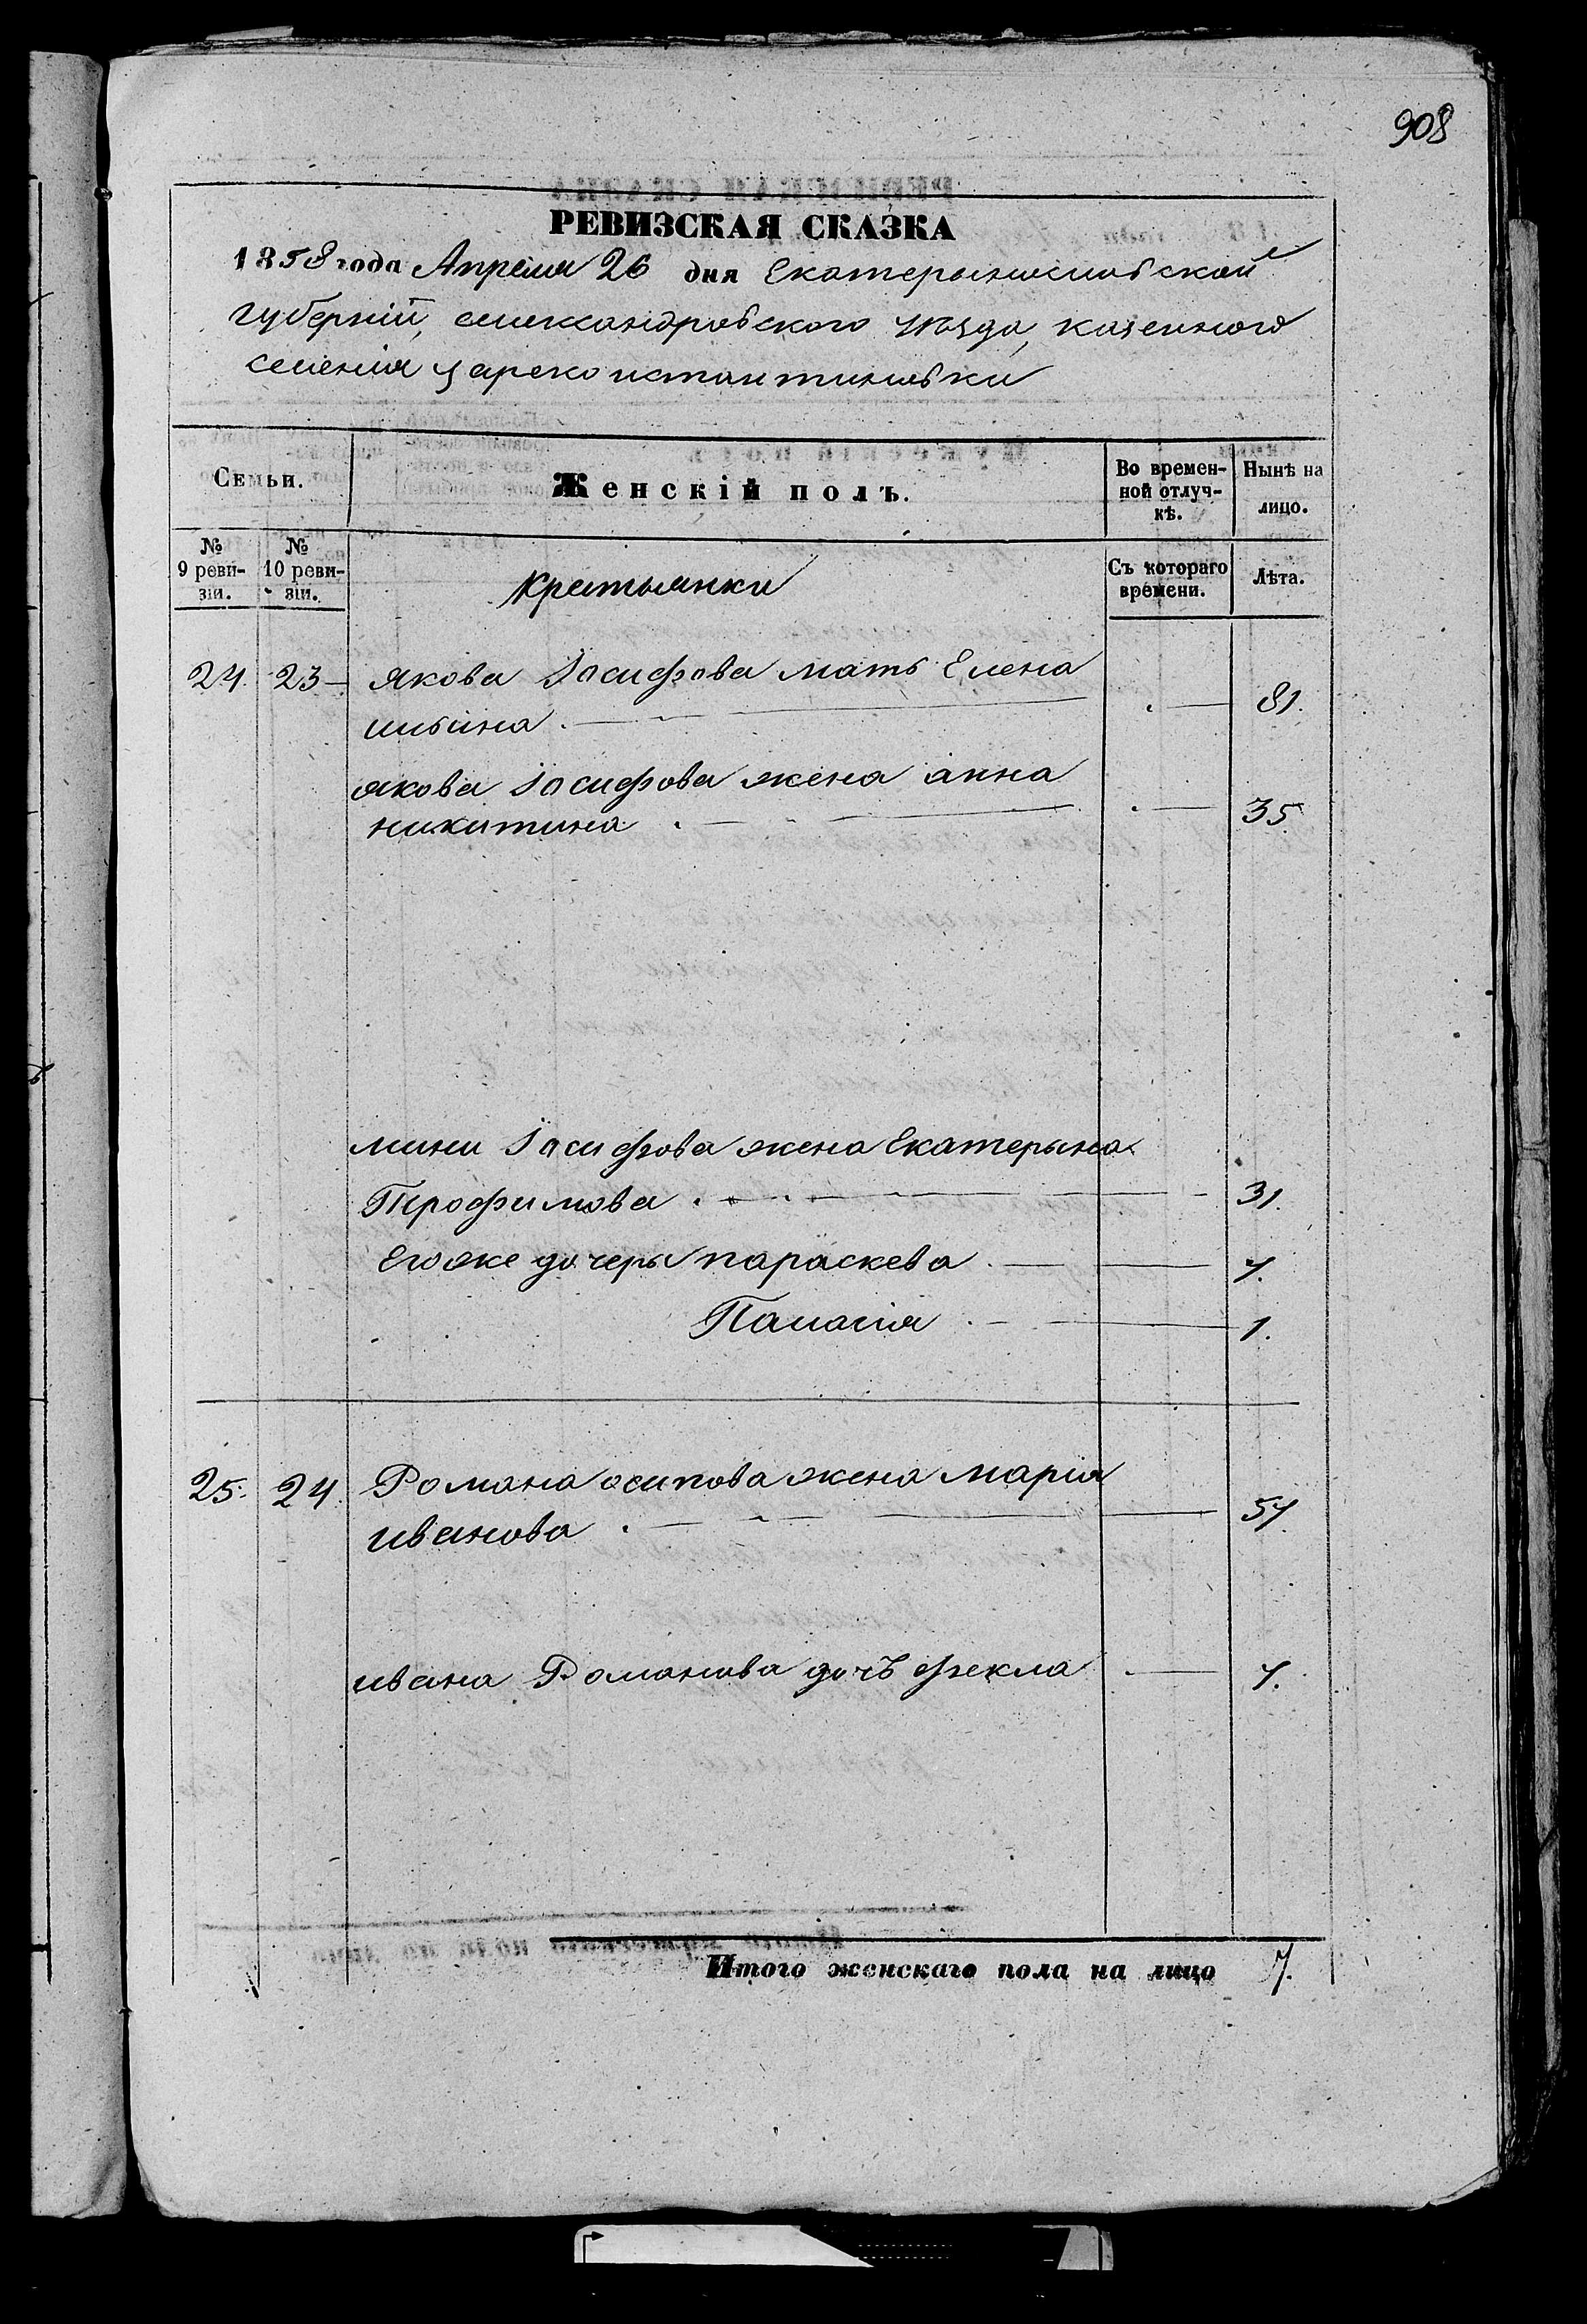 908
РЕВИЗСКАЯ СКАЗКА
1858 года Апреля 26 дня Екатерынославской
губерніи, александровского уѣзда, казенного
селенія Цареконстантиновки
Семьи.
Женскій полъ.
Во времен-
ной отлуч-
кѣ.
Нынѣ на
лицо.
№
9 реви-
зіи.
№
10 реви-
зіи.
Крестьянки
Съ котораго
времени.
Лѣта.
24. 23 Якова Іосифова мать Елена
ильина 81.
якова Іосифова жена анна
никитина 35
мини Іосифова жена Екатерына
Трофимова 31.
Егоже дочеры параскева 7.
Палагія 1.
25. 24. Романа осипова жена марія
иванова 57.
ивана Романова дочъ фекла 7.
Итого женскаго пола на лицо 7.